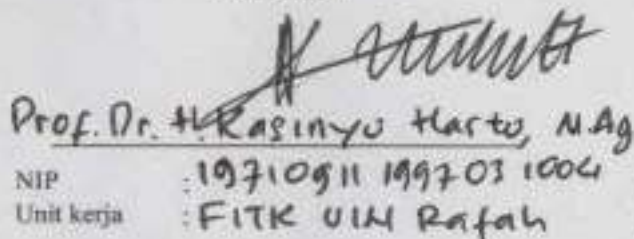 Prof. Dr. H. Kasinyo Harto, M.Ag
NIP : 19710911 199703 1004
Unit kerja : FITK UIN Rafah